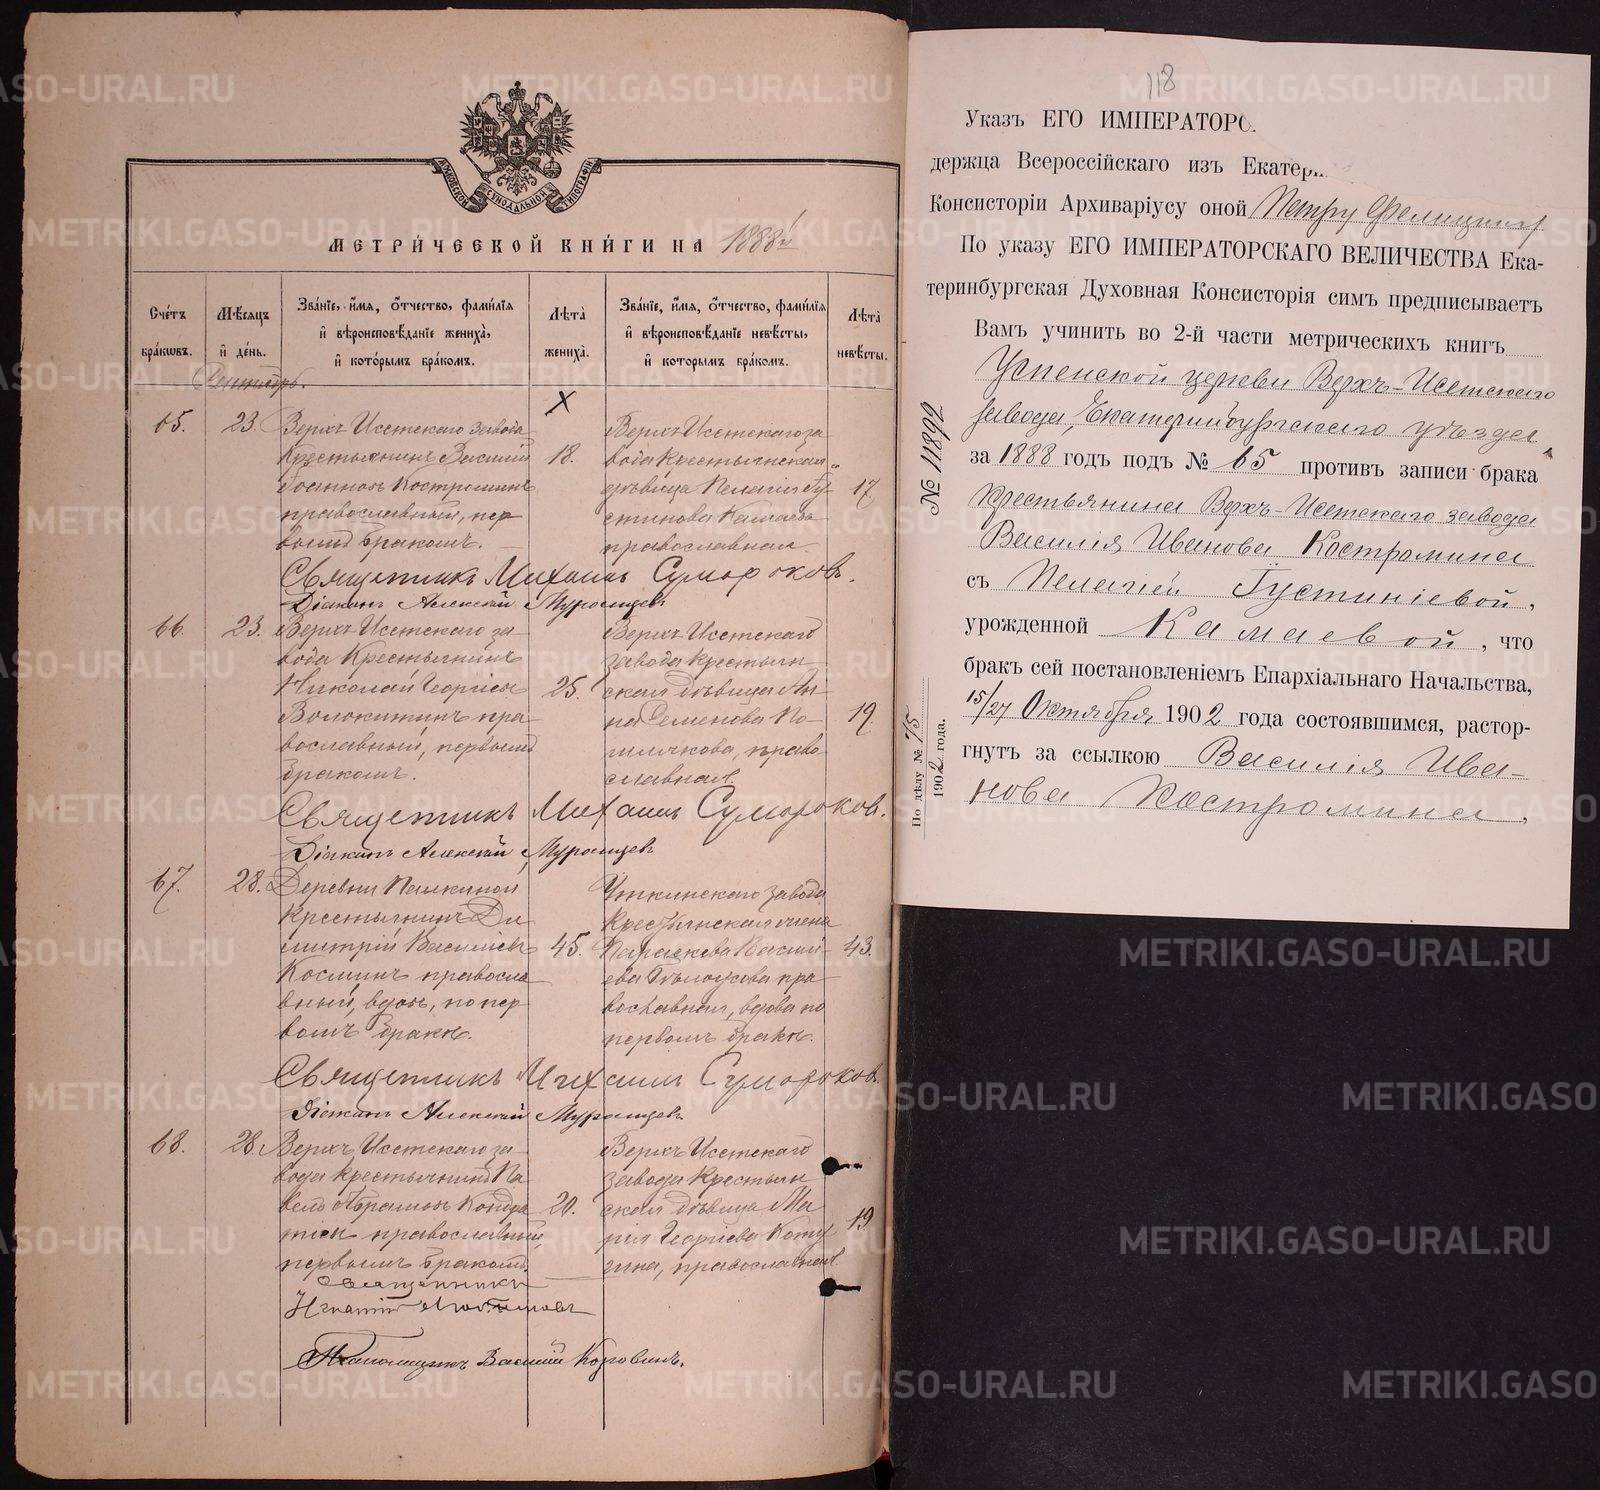 МЕТРИ́ЧЕСКОЙ КНИ́ГИ НА 1888й
Сче́тъ бра́кωвъ.
Мѣ́сяцъ и҆ де́нь.
Зва́нїе, и҆́мя, ѻ҆́тчество, фами́лїя и҆ вѣроисповѣ́данїе жениха̀, и҆ кото́рымъ бра́комъ.
Лѣ́та жениха̀.
Зва́нїе, и҆́мя, ѻ҆́тчество, фами́лїя и҆ вѣроисповѣ́данїе невѣ́сты, и҆ которымъ бра́комъ.
Лѣ́та невѣ́сты.
Сентябрь.
X
65.
23.
Верхъ-Исетскаго завода
крестьянинъ Василій
Іоанновъ Костроминъ
православный, пер
вымъ бракомъ.
18.
Верхъ-Исетскаго за
вода крестьянская
дѣвица Пелагія Гу
стинова Камаева
православная.
17
Священникъ Михаилъ Сумороковъ.
Діаконъ Алексій Муромцевъ
66.
23.
Верхъ-Исетскаго за
вода крестьянинъ
Николай Георгіевъ
Волокитинъ пра
вославный, первымъ
бракомъ.
25.
Верхъ-Исетскаго
завода крестьян
ская дѣвица Ан
на Семенова По
лячкова, право
славная.
19.
Священникъ Михаилъ Сумороковъ.
Діаконъ Алексій Муромцевъ
67.
28.
Деревни Палкиной
крестьянинъ Ди
митрій Васильевъ
Косминъ правосла
вный, вдовъ, по пер
вомъ бракѣ.
45.
Уткинскаго завода
крестьянская жена
Параскева Василь
ева Бѣлоусова пра
вославная, вдова по
первомъ бракѣ.
43.
Священникъ Михаилъ Сумороковъ.
Діаконъ Алексій Муромцевъ
68.
28.
Верхъ-Исетскаго за
вода крестьянинъ Па
велъ Абрамовъ Кондра
тієв православный,
первымъ бракомъ.
20.
Верхъ-Исетскаго
завода крестьян
ская дѣвица Ма
рія Георгіева Коту
гина, православная.
19.
Священникъ
Игнатій Любимовъ
Псаломщикъ Василій Коровинъ.
118
Указъ ЕГО ИМПЕРАТОРС
держца Всероссійскаго изъ Екатери
Консисторіи Архиваріусу оной Петру Фелицину
По указу ЕГО ИМПЕРАТОРСКАГО ВЕЛИЧЕСТВА Ека-
теринбургская Духовная Консисторія симъ предписываетъ
Вамъ учинить во 2-й части метрическихъ книгъ
Успенской церкви Верхъ-Исетскаго
завода, Екатеринбургскаго уѣзда,
за 1888 годъ подъ № 65 противъ записи брака
крестьянина Верхъ-Исетскаго завода
Василія Иванова Костромина
съ Пелагіей Густиніевой,
урожденной Камаевой, что
бракъ сей постановленіемъ Епархіальнаго Начальства,
15/27 Октября 1902 года состоявшимся, растор-
гнутъ за ссылкою Василія Ива-
нова Костромина.
№ 11892
По дѣлу № 75
1902 года.